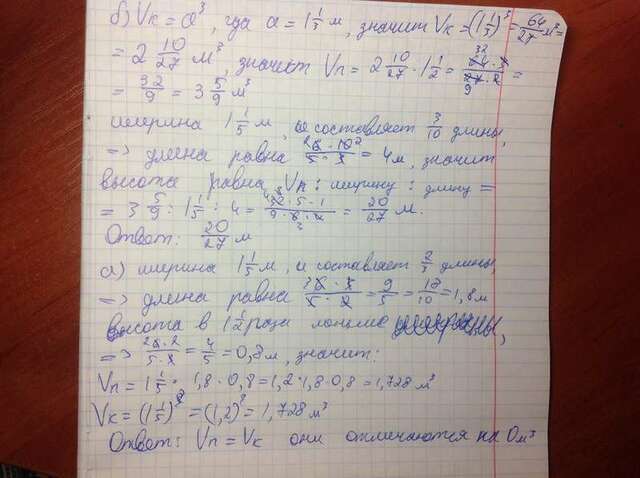 б) Vк = a³, где a = 1 1/3 м, значит Vк = (1 1/3)³ = 64/27 м³ =
= 2 10/27 м³, значит Vп = 2 10/27 · 1 1/2 = 64 · 3 / 27 · 2 =
= 32/9 = 3 5/9 м³
ширина 1 1/5 м, и составляет 3/10 длины,
=> длина равна 6 · 10 / 5 · 3 = 4 м, значит
высота равна Vп : ширину : длину =
= 3 5/9 : 1 1/5 : 4 = 32 · 5 · 1 / 9 · 6 · 4 = 20/27 м.
Ответ: 20/27 м
а) ширина 1 1/5 м, и составляет 2/3 длины,
=> длина равна 6 · 3 / 5 · 2 = 9/5 = 18/10 = 1,8 м
высота в 1 1/2 раза меньше ширины,
=> 6 · 2 / 5 · 3 = 4/5 = 0,8 м, значит:
Vп = 1 1/5 · 1,8 · 0,8 = 1,2 · 1,8 · 0,8 = 1,728 м³
Vк = (1 1/5)³ = (1,2)³ = 1,728 м³
Ответ: Vп = Vк они отличаются на 0 м³